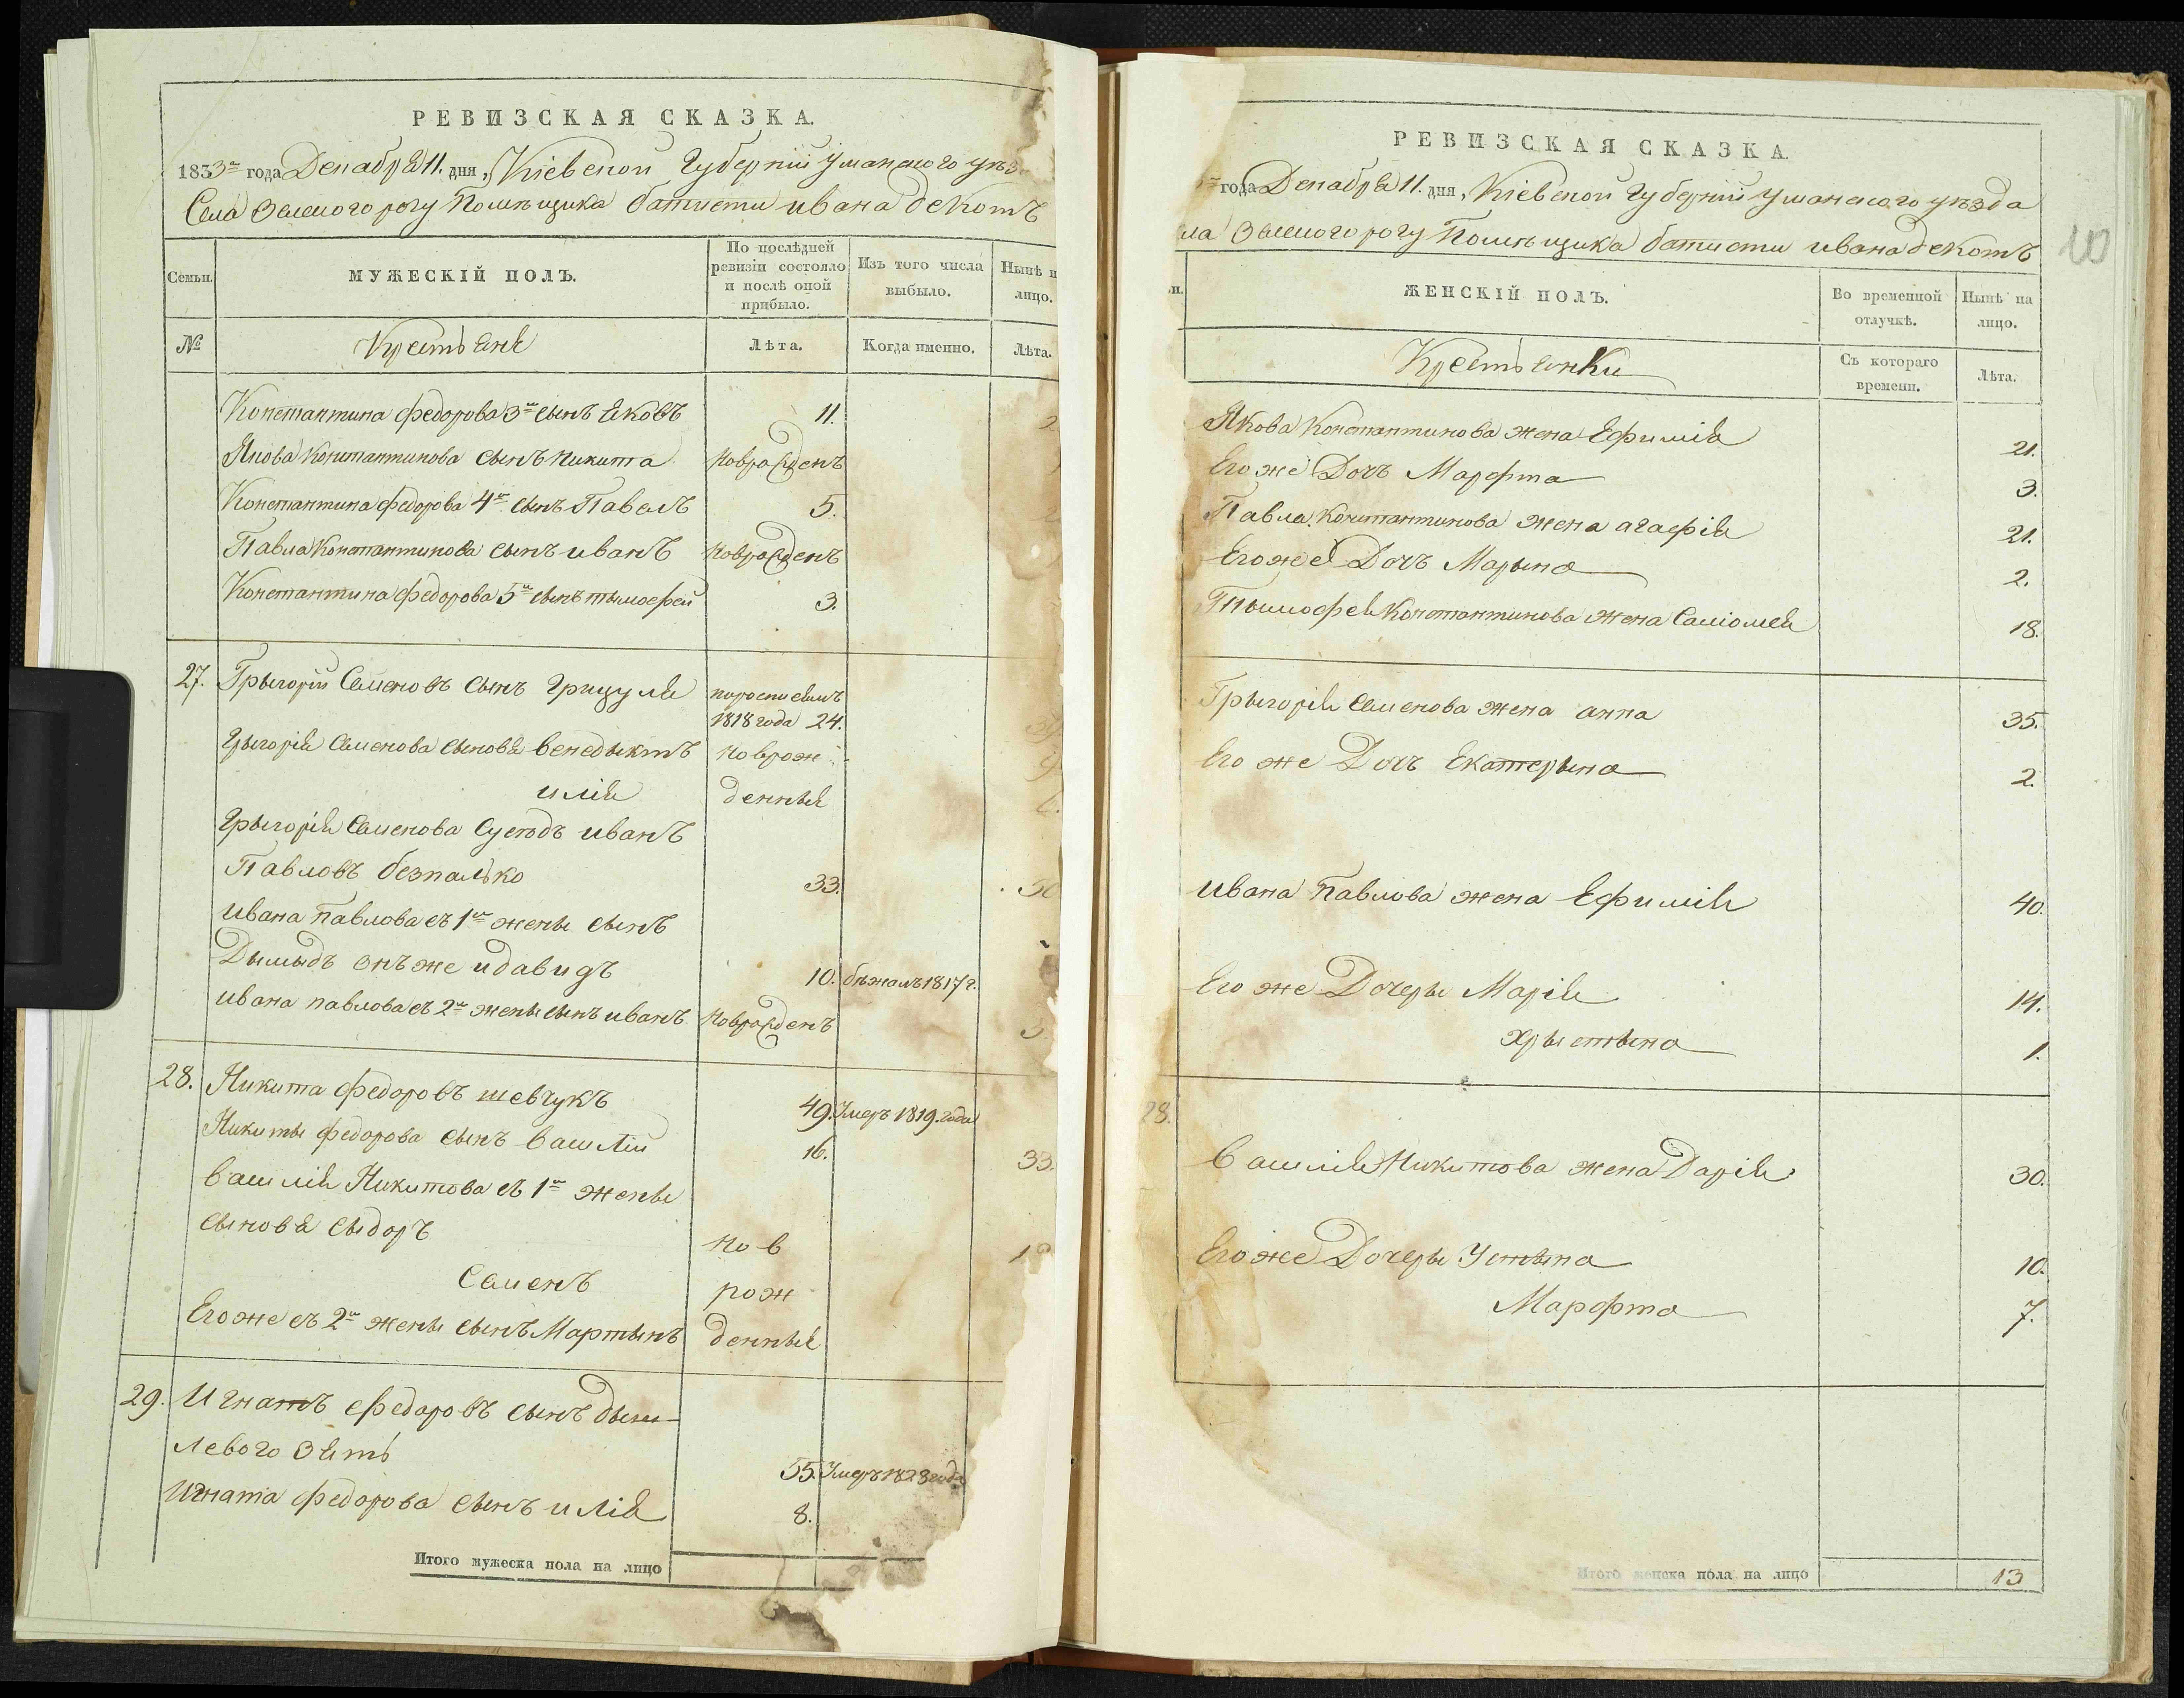 РЕВИЗСКАЯ СКАЗКА.
1833го года Декабря 11. дня, Кіевской Губерніи Уманского уѣз
Села Зеленого рогу Помѣщика батисти ивана декотъ
Семьи.
МУЖЕСКІЙ ПОЛЪ.
По послѣдней ревизіи состояло и послѣ оной прибыло.
Изъ того числа выбыло.
Нынѣ н лицо.
№
Крестьяне
Лѣта.
Когда именно.
Лѣта.
Константина федорова 3й сынъ Яковъ 11. 2
Якова Константинова сынъ Никита новрожденъ
Константина федорова 4й сынъ Павелъ 5. 2
Павла Константинова сынъ иванъ новрожденъ
Константина федорова 5й сынъ тымофей 3.
27. Грыгорій Семеновъ сынъ Грицуля
1818 года 24.
Грыгорія Семенова сыновя венедыктъ новрож 9
илія денныя
Грыгорія Семенова Суседъ иванъ
Павловъ безпалько 33. 50
ивана Павлова съ 1й жены сынъ
Дымыдъ онъ же идавидъ 10. бѣжалъ 1817г.
ивана павлова съ 2й жены сынъ иванъ новрожденъ
28. Никита федоровъ шевчукъ 49. Умеръ 1819. года
Никиты федорова сынъ василій 16. 33.
василія Никитова съ 1й жены
сыновя сыдоръ нов
Семенъ рож
Его же съ 2й жены сынъ Мартынъ денныя
29. Игнатъ федоровъ сынъ
левого зять 55. Умеръ 1828 года
Игната федорова сынъ илія 8.
Итого мужеска пола на лицо
РЕВИЗСКАЯ СКАЗКА.
года Декабря 11. дня, Кіевской Губерніи Уманского уѣзда
ла Зеленого рогу Помѣщика батисти ивана декотъ
10
ЖЕНСКІЙ ПОЛЪ.
Во временной отлучкѣ.
Нынѣ на лицо.
Крестьянки
Съ котораго времени.
Лѣта.
Якова Константинова жена Ефимія 21.
Его же Дочь Марфта 3.
Павла Константинова жена агафія 21.
Его же Дочь Марына 2.
Тымофея Константинова жена Саломея 18.
Грыгорія Семенова жена анна 35.
Его же Дочь Екатерына 2.
ивана Павлова жена Ефимія 40.
Его же Дочеры Марія 14.
Хрыстына 1.
28.
василія Никитова жена Дарія 30.
Его же Дочеры Устына 10.
Марфта 7.
Итого женска пола на лицо 13